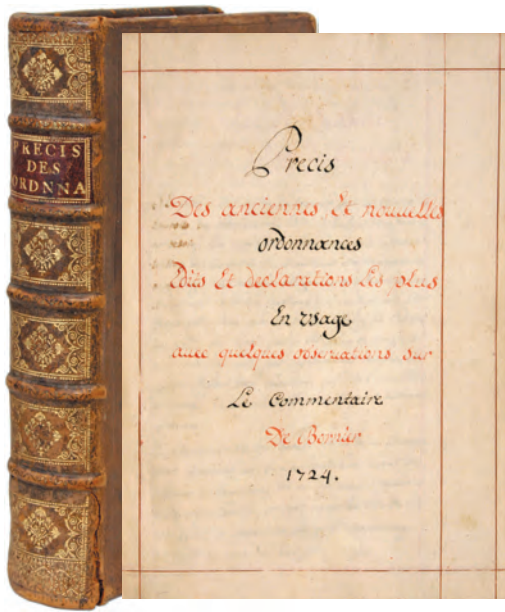 PRECIS
DES
ORDNNA
Precis
Des anciennes Et nouuelles
ordonnances
Edits Et declarations Les plus
En vsage
auec quelques obseruations sur
Le Commentaire
De Bornier
1724.